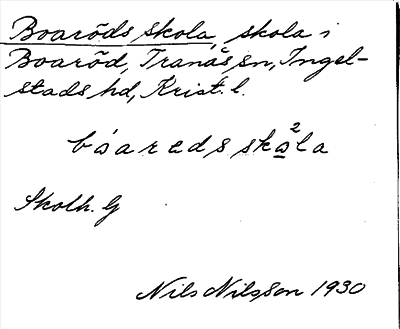 Boarōds skola, skola i
Boarōd, Tranås sn, Ingel-
stads hd, Krist. l.
bóaredssko̲²la
Skolh. G
Nils Nilsson 1930